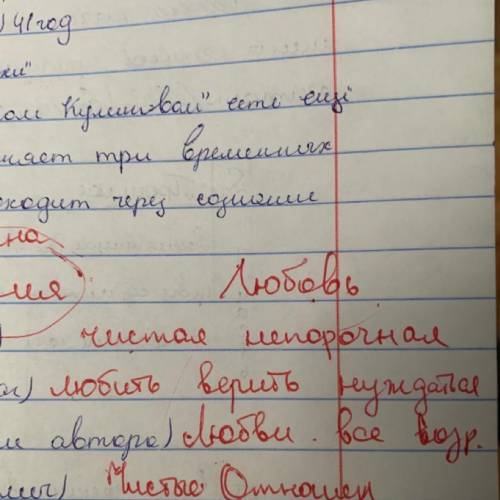 ) 41 год
ки"
ом Куликовом" есть ещё
няет три временных
сходит через сознание
на
ия Любовь
) чистая непорочная
ог) любить верить нуждаться
м автора) Любви все возр.
мич) Чистые Отношен